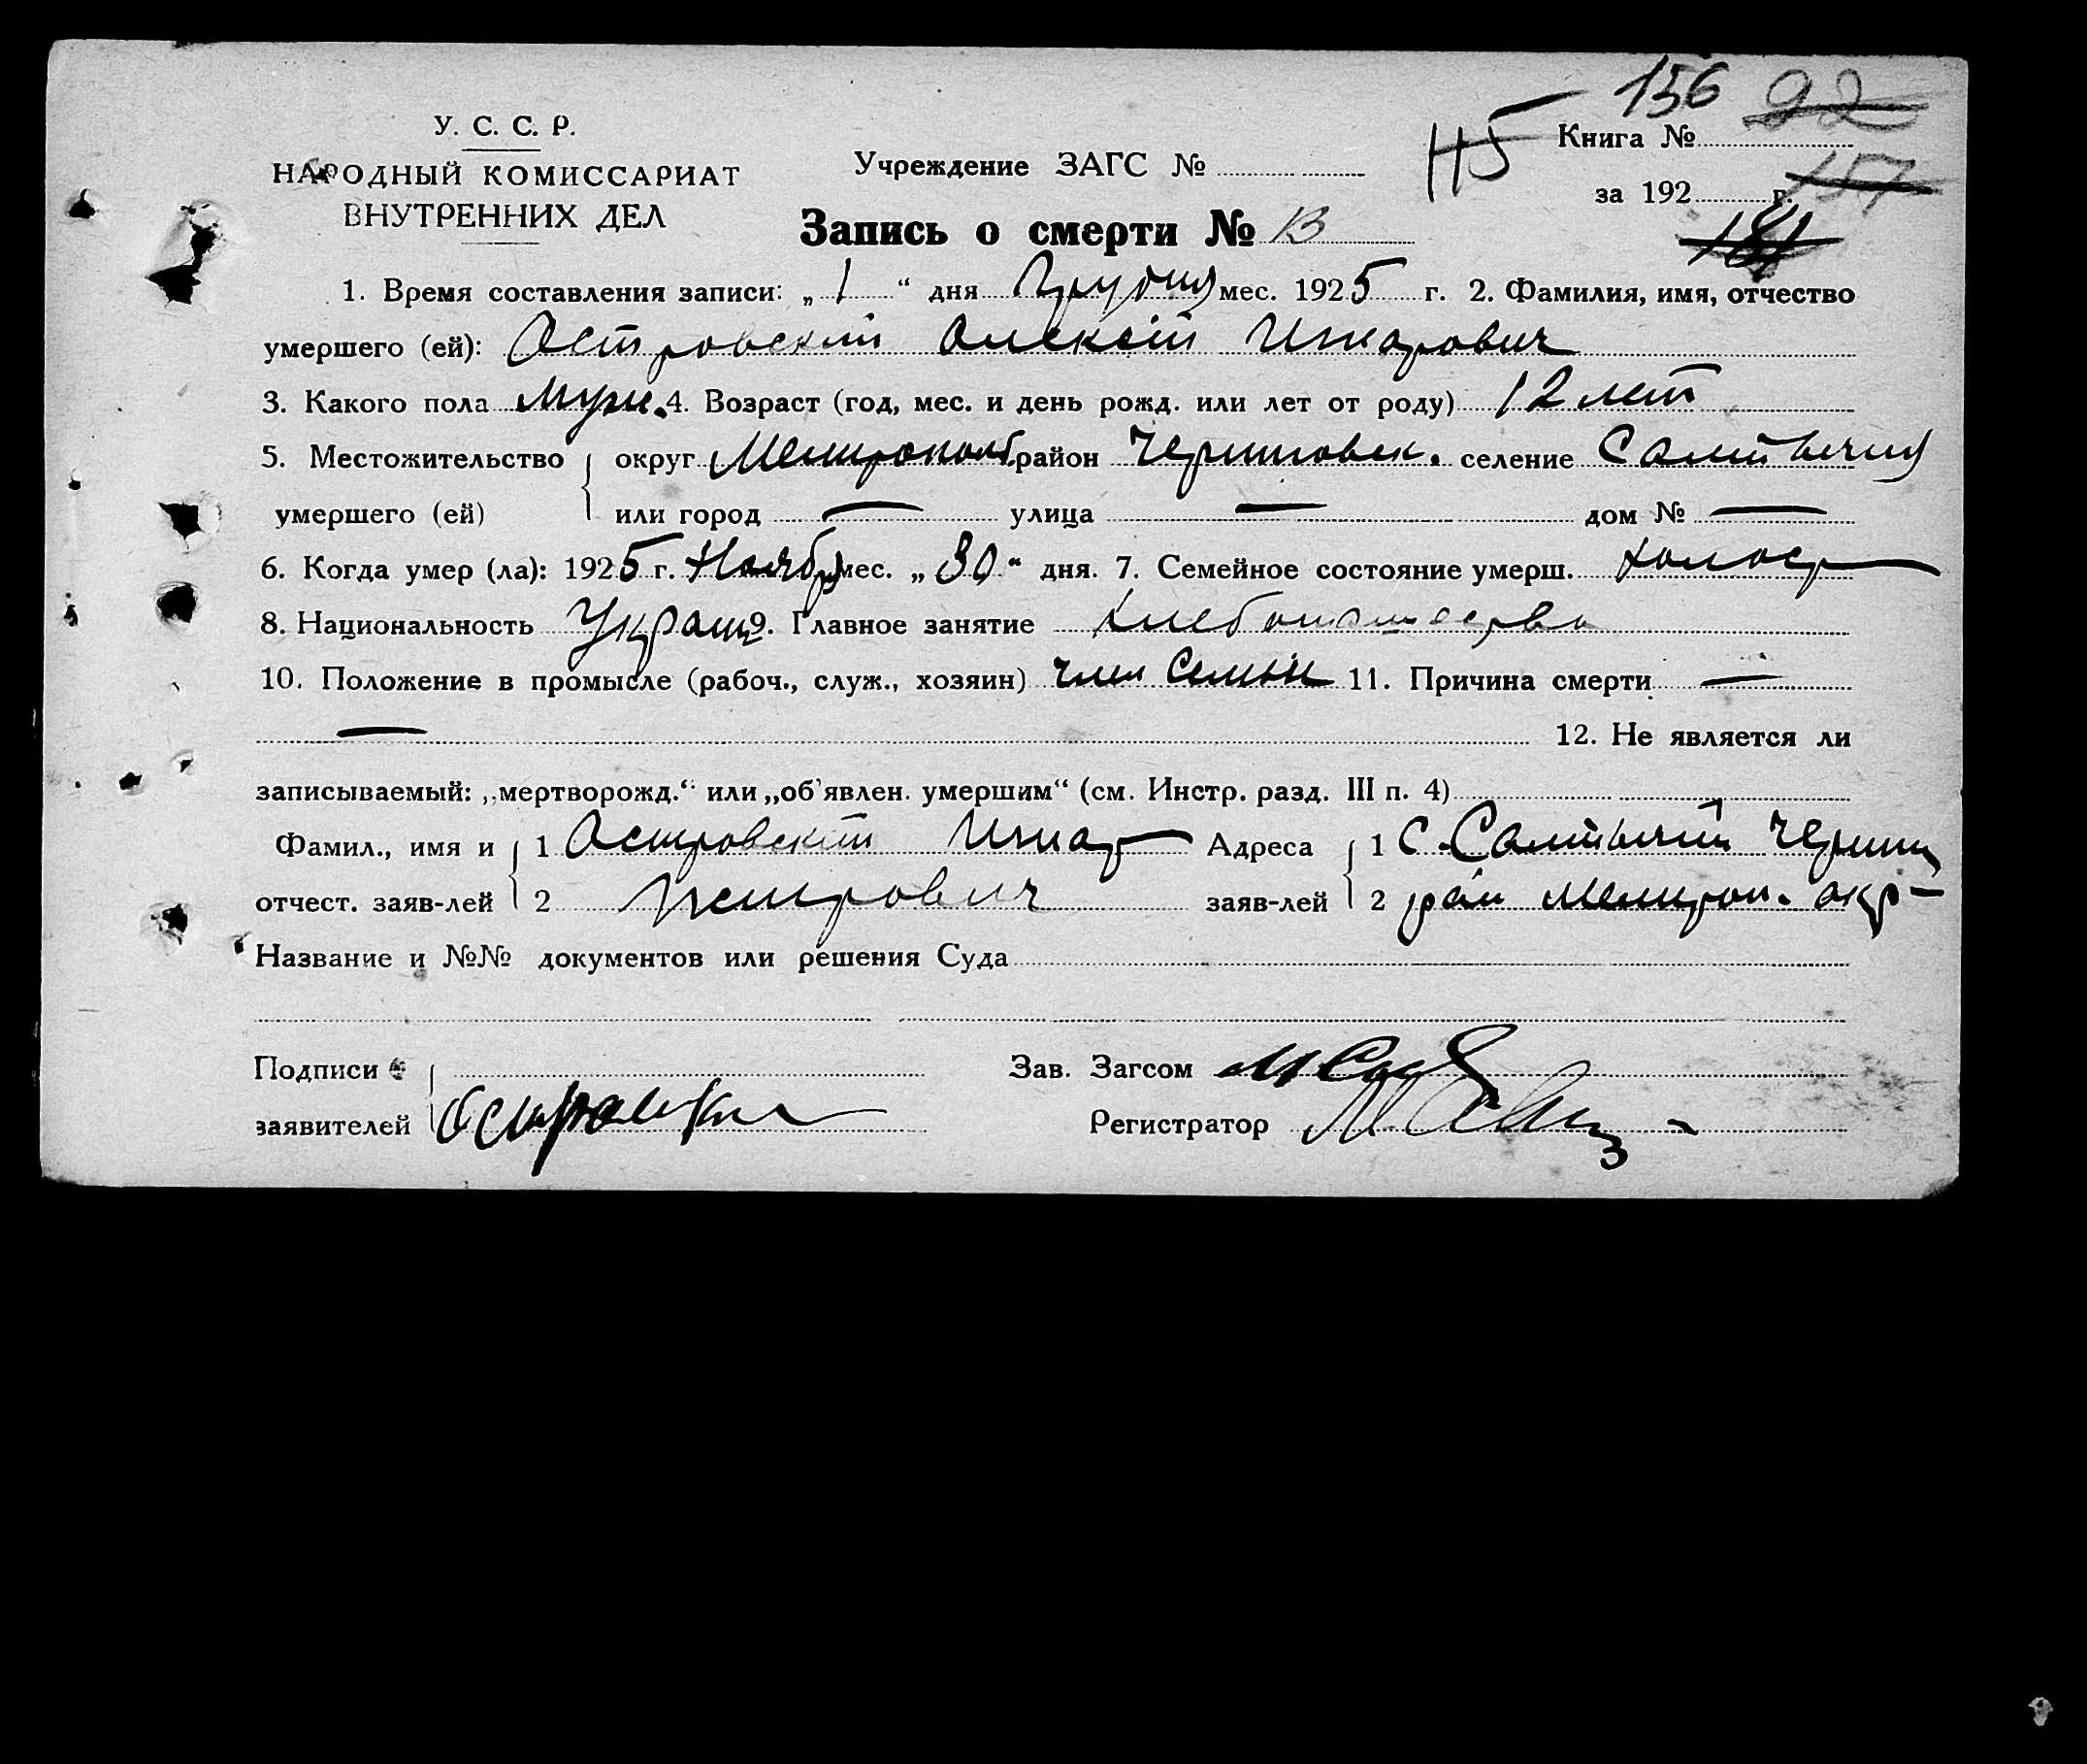 156 92
У. С. С. Р.
Н5 Книга №
НАРОДНЫЙ КОМИССАРИАТ Учреждение ЗАГС №
за 192 г. 157
ВНУТРЕННИХ ДЕЛ
Запись о смерти № 13 181
1. Время составления записи: „ 1 “ дня Грудня мес. 1925 г. 2. Фамилия, имя, отчество
умершего (ей): Островский Алексей
3. Какого пола Муж. 4. Возраст (год, мес. и день рожд. или лет от роду) 12 лет
5. Местожительство округ район селение
умершего (ей) или город — улица — дом № —
6. Когда умер (ла): 1925 г. Ноябр мес. „30“ дня. 7. Семейное состояние умерш. холост
8. Национальность Украин 9. Главное занятие
10. Положение в промысле (рабоч., служ., хозяин) член Семьи 11. Причина смерти —
— 12. Не является ли
записываемый: „мертворожд.“ или „об'явлен. умершим“ (см. Инстр. разд. III п. 4)
Фамил., имя и 1 Островский Адреса 1 С.
отчест. заяв-лей 2 Петрович заяв-лей 2 рай Мелитоп. окр
Название и №№ документов или решения Суда
Подписи Зав. Загсом
заявителей Регистратор